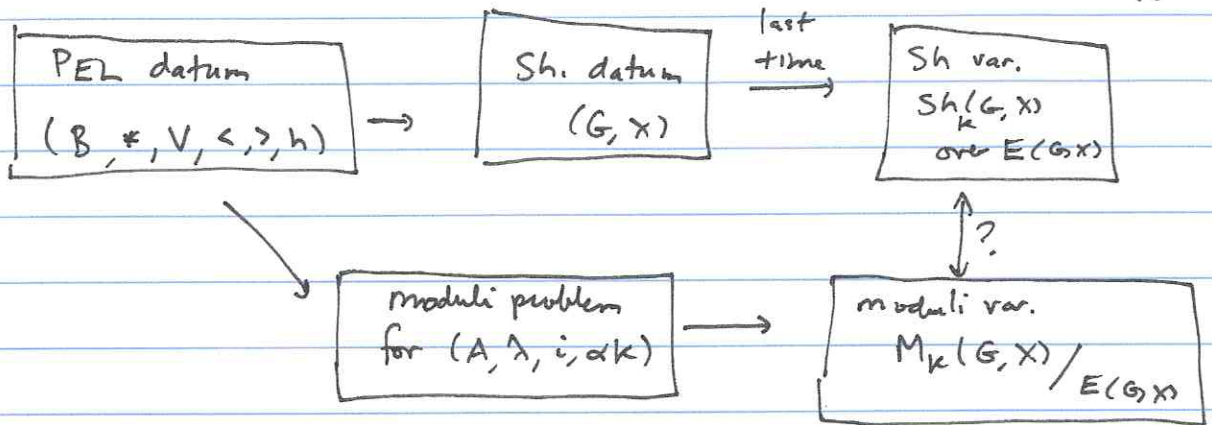 PEL datum
(B, *, V, < , >, h)
→
Sh. datum
(G, X)
last
time
→
Sh var.
Sh_K(G, X)
over E(G,X)
?
moduli problem
for (A, λ, i, αK)
→
moduli var.
M_K(G, X) / E(G,X)